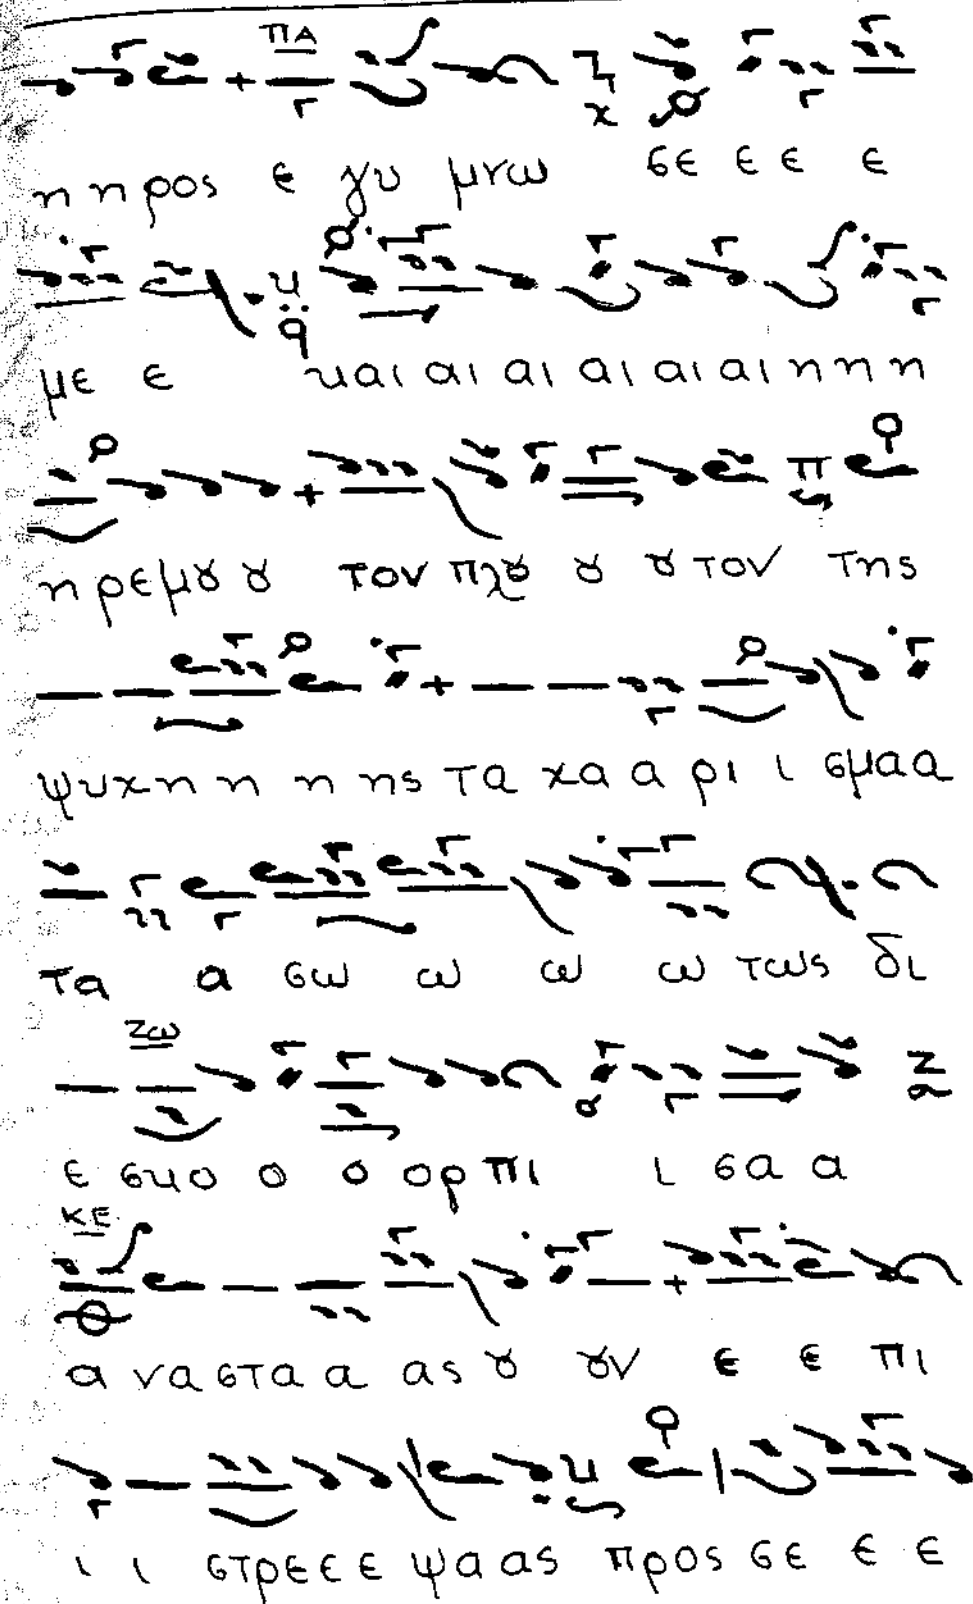 ΠΑ
η η ρος ε γυ μνω σε ε ε ε
με ε και αι αι αι αι αι η η η
η ρεμȣ ȣ τον πλȣ ȣ ȣ τον της
ψυχη η η ης τα χα α ρι ι σμα α
τα α σω ω ω ω τως δι
Ζω
ε σκο ο ο ορ πι ι σα α
ΚΕ
α να στα α ας ȣ ȣν ε ε πι
ι ι στρε ε ε ψα ας προς σε ε ε